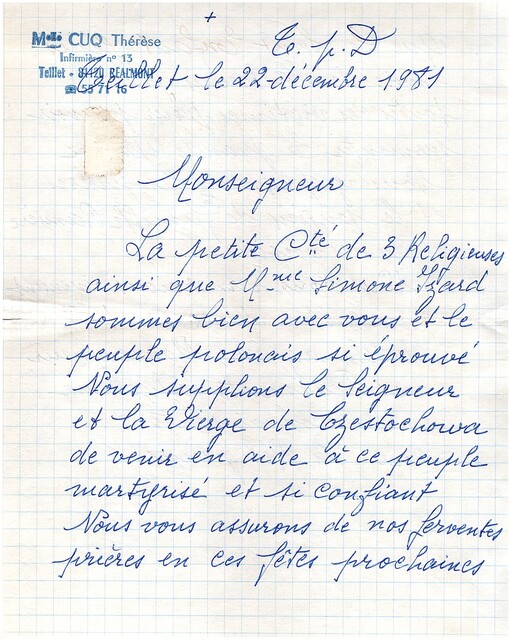 +
Mlle CUQ Thérèse
Infirmière n° 13
Teillet - 81120 REALMONT
☎ 55 71 16
T. p. D
Teillet le 22-décembre 1981
Monseigneur
La petite Cté de 3 Religieuses
ainsi que Mme Simone Izard
sommes bien avec vous et le
peuple polonais si éprouvé
Nous supplions le Seigneur
et la Vierge de Czestochowa
de venir en aide à ce peuple
martyrisé et si confiant
Nous vous assurons de nos ferventes
prières en ces fêtes prochaines